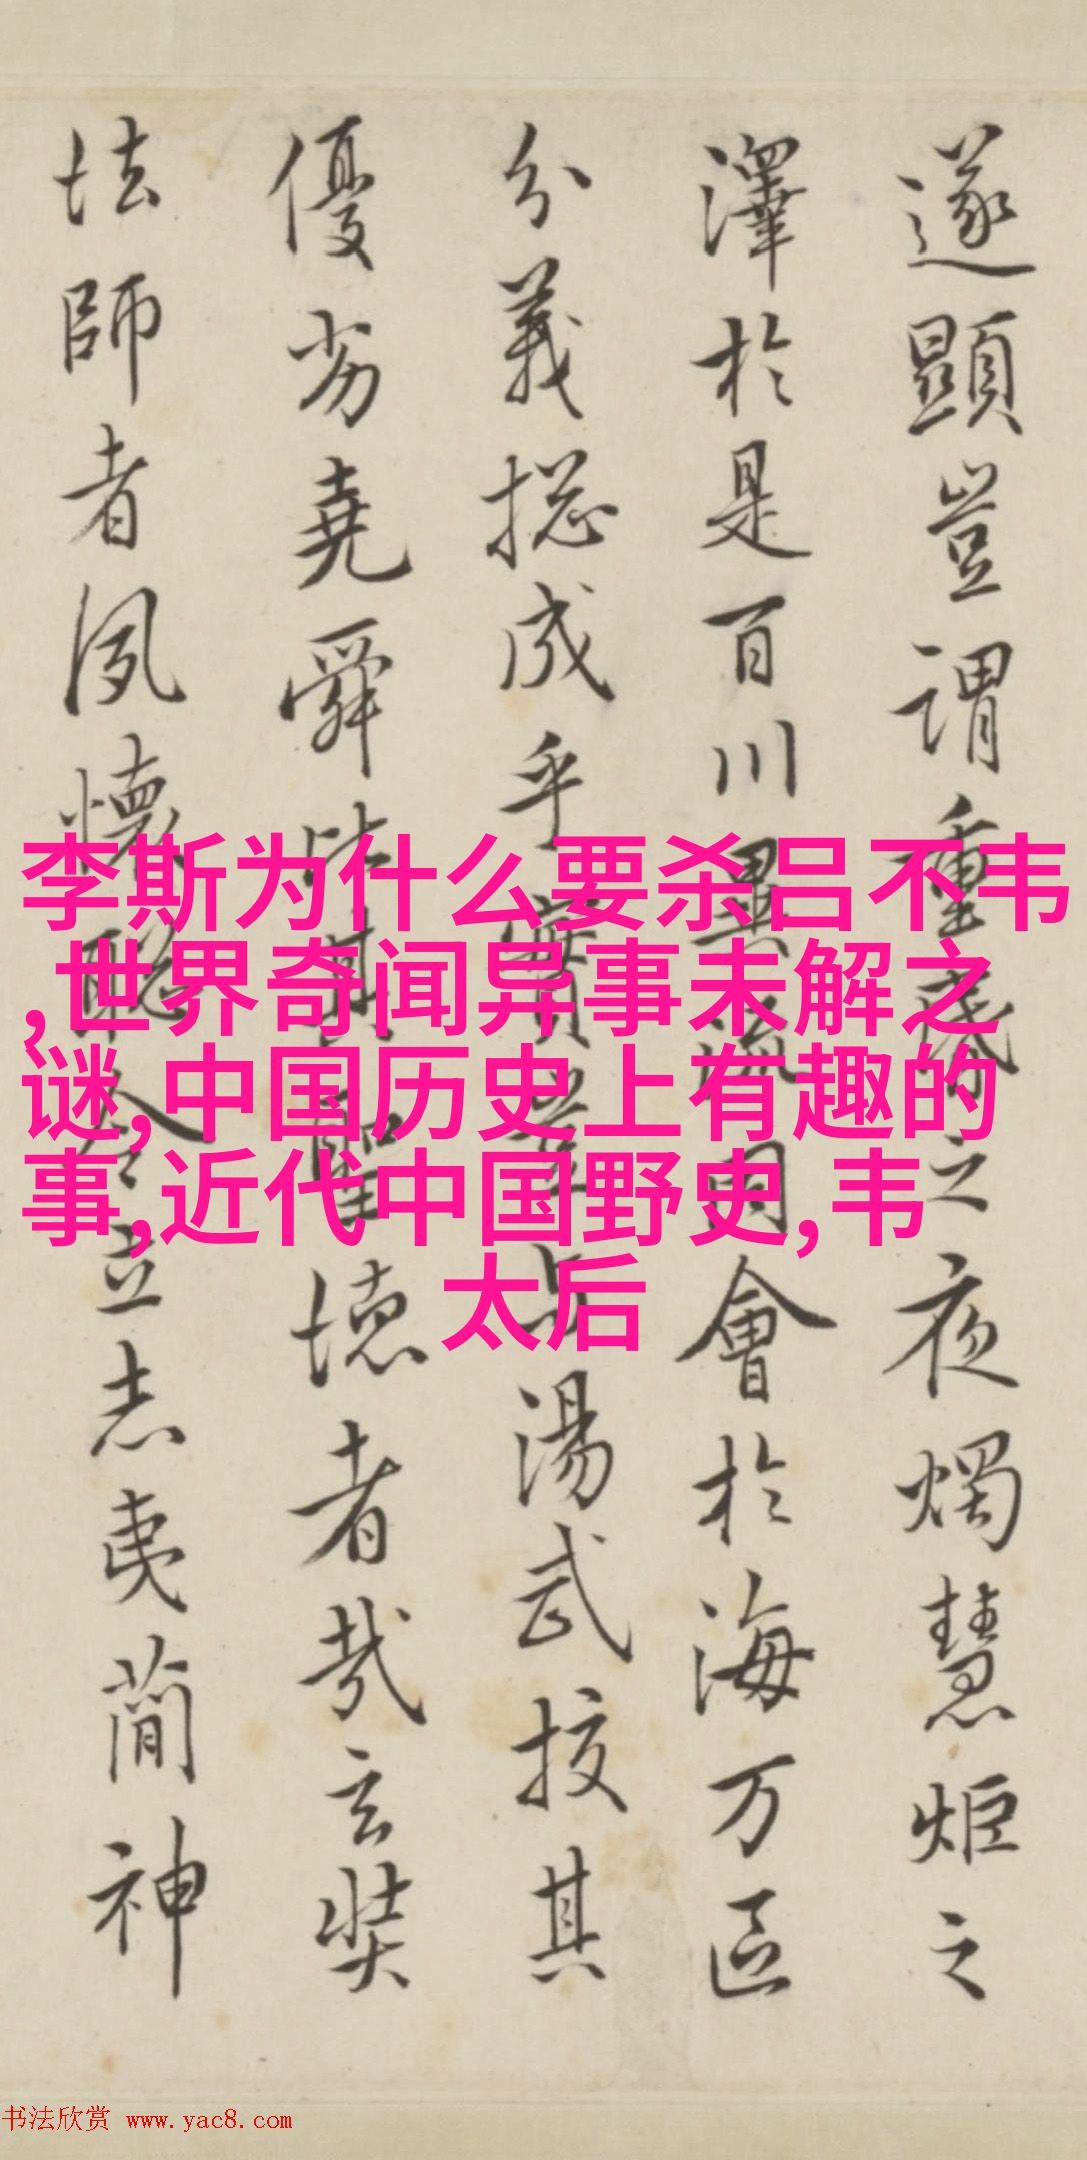 遂顯豈謂重昏之夜燭慧炬之
澤於是百川異流同會於海万區
分義揔成乎實豈與湯武挍其
優劣堯舜比其聖德者哉玄奘
法師者夙懷聰令立志夷簡神
李斯为什么要杀吕不韦
,世界奇闻异事未解之
谜,中国历史上有趣的
事,近代中国野史,韦
太后
书法欣赏 www.yac8.com